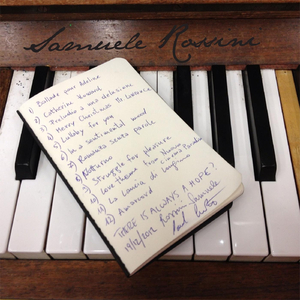 Samuele Rossini
1) Ballade pour Adeline
2) Catherine Howard
3) Preludio a una delusione
4) Merry Christmas Mr Lawrence
5) Lullaby for you
6) In a sentimental mood
7) Romanza senza parole
8) Notturno
9) Struggle for pleasure
10) Love theme from Nuovo Cinema Paradiso
11) La caccia
12) Amarcord
THERE IS ALWAYS A HOPE?
19/12/2012 Rossini Samuele